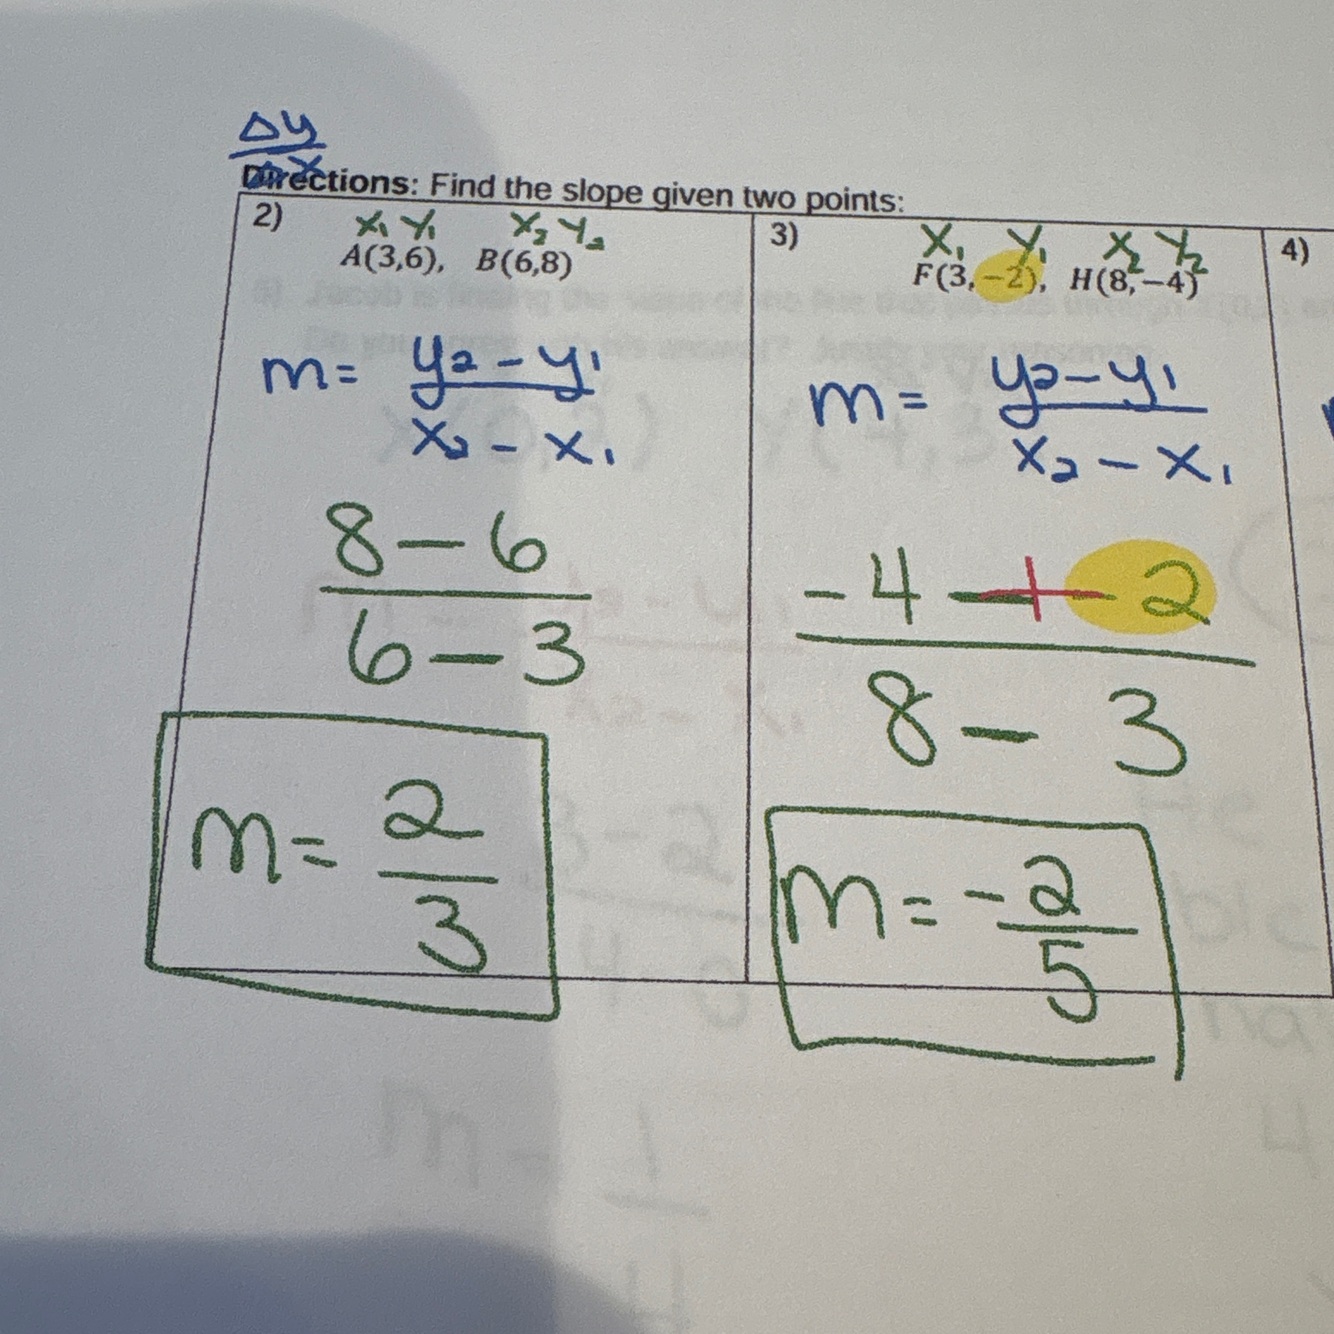 Δy
Δx
Directions: Find the slope given two points:
2)
x₁ y₁ x₂ y₂
A(3,6), B(6,8)
m = y₂ - y₁
x₂ - x₁
8 - 6
6 - 3
m = 2
3
3)
x₁ y₁ x₂ y₂
F(3,-2), H(8,-4)
m = y₂ - y₁
x₂ - x₁
-4 + 2
8 - 3
m = -2
5
4)